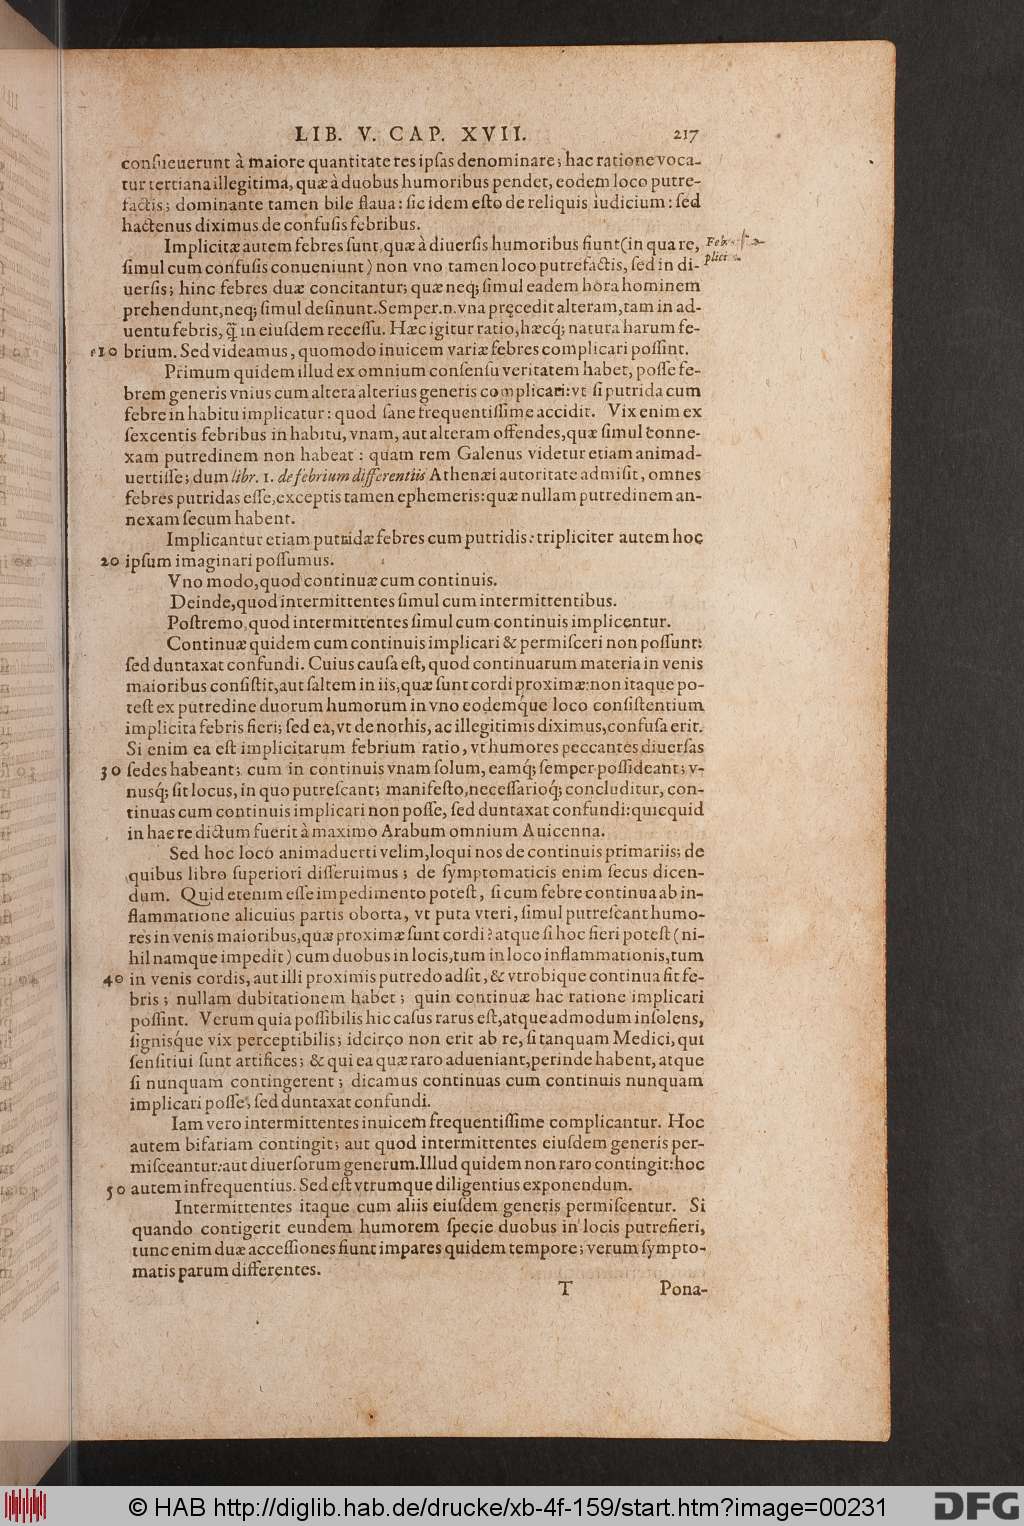 LIB. V. CAP. XVII. 217
conſueuerunt à maiore quantitate res ipſas denominare; hac ratione voca-
tur tertiana illegitima, quæ à duobus humoribus pendet, eodem loco putre-
factis; dominante tamen bile flaua: ſic idem eſto de reliquis iudicium: ſed
hactenus diximus de confuſis febribus.
Implicitæ autem febres ſunt, quæ à diuerſis humoribus fiunt (in qua re,
ſimul cum confuſis conueniunt) non vno tamen loco putrefactis, ſed in di-
uerſis; hinc febres duæ concitantur; quæ neq; ſimul eadem hora hominem
prehendunt, neq; ſimul deſinunt. Semper .n. vna pręcedit alteram, tam in ad-
uentu febris, q̃ in eiuſdem receſſu. Hæc igitur ratio, hæcq́; natura harum fe-
10 brium. Sed videamus, quomodo inuicem variæ febres complicari poſſint.
Primum quidem illud ex omnium conſenſu veritatem habet, poſſe fe-
brem generis vnius cum altera alterius generis complicari: vt ſi putrida cum
febre in habitu implicatur: quod ſane frequentiſſime accidit. Vix enim ex
ſexcentis febribus in habitu, vnam, aut alteram offendes, quæ ſimul conne-
xam putredinem non habeat: quam rem Galenus videtur etiam animad-
uertiſſe; dum libr. 1. de febrium differentiis Athenæi autoritate admiſit, omnes
febres putridas eſſe, exceptis tamen ephemeris: quæ nullam putredinem an-
nexam ſecum habent.
Implicantur etiam putridæ febres cum putridis: tripliciter autem hoc
20 ipſum imaginari poſſumus.
Vno modo, quod continuæ cum continuis.
Deinde, quod intermittentes ſimul cum intermittentibus.
Poſtremo, quod intermittentes ſimul cum continuis implicentur.
Continuæ quidem cum continuis implicari & permiſceri non poſſunt:
ſed duntaxat confundi. Cuius cauſa eſt, quod continuarum materia in venis
maioribus conſiſtit, aut ſaltem in iis, quæ ſunt cordi proximæ: non itaque po-
teſt ex putredine duorum humorum in vno eodemq́ue loco conſiſtentium
implicita febris fieri; ſed ea, vt de nothis, ac illegitimis diximus, confuſa erit.
Si enim ea eſt implicitarum febrium ratio, vt humores peccantes diuerſas
30 ſedes habeant; cum in continuis vnam ſolum, eamq́; ſemper poſſideant; v-
nusq́; ſit locus, in quo putreſcant; manifeſto, neceſſarioq́; concluditur, con-
tinuas cum continuis implicari non poſſe, ſed duntaxat confundi: quicquid
in hac re dictum fuerit à maximo Arabum omnium Auicenna.
Sed hoc loco animaduerti velim, loqui nos de continuis primariis; de
quibus libro ſuperiori diſſeruimus; de ſymptomaticis enim ſecus dicen-
dum. Quid etenim eſſe impedimento poteſt, ſi cum febre continua ab in-
flammatione alicuius partis oborta, vt puta vteri, ſimul putreſcant humo-
res in venis maioribus, quæ proximæ ſunt cordi? atque ſi hoc fieri poteſt (ni-
hil namque impedit) cum duobus in locis, tum in loco inflammationis, tum
40 in venis cordis, aut illi proximis putredo adſit, & vtrobique continua ſit fe-
bris; nullam dubitationem habet; quin continuæ hac ratione implicari
poſſint. Verum quia poſſibilis hic caſus rarus eſt, atque admodum inſolens,
ſignisq́ue vix perceptibilis; idcirco non erit ab re, ſi tanquam Medici, qui
ſenſitiui ſunt artifices; & qui ea quæ raro adueniant, perinde habent, atque
ſi nunquam contingerent; dicamus continuas cum continuis nunquam
implicari poſſe, ſed duntaxat confundi.
Iam vero intermittentes inuicem frequentiſſime complicantur. Hoc
autem bifariam contingit; aut quod intermittentes eiuſdem generis per-
miſceantur: aut diuerſorum generum. Illud quidem non raro contingit: hoc
50 autem infrequentius. Sed eſt vtrumque diligentius exponendum.
Intermittentes itaque cum aliis eiuſdem generis permiſcentur. Si
quando contigerit eundem humorem ſpecie duobus in locis putrefieri,
tunc enim duæ acceſſiones fiunt impares quidem tempore; verum ſympto-
matis parum differentes.
T Pona-
© HAB http://diglib.hab.de/drucke/xb-4f-159/start.htm?image=00231
DFG